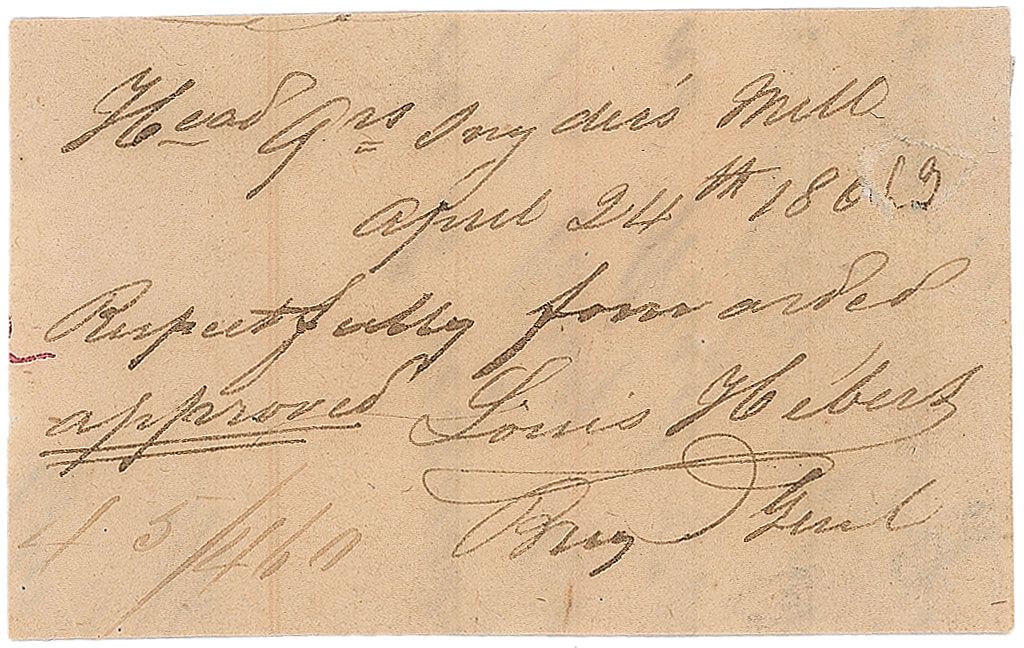 Head Qrs Snyder's Mill
April 24th 1863
Respectfully forwarded
approved Louis Hébert
Brig Genl